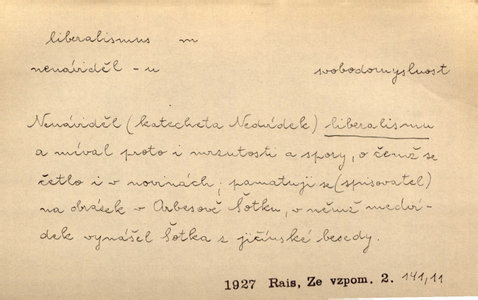 liberalismus m
nenáviděl -u svobodomyslnost
Nenáviděl (katecheta Nedvídek) liberalismu
a míval proto i mrzutosti a spory, o čemž se
četlo i v novinách; pamatuji se (spisovatel)
na obrázek v Arbesově Šotku, v němž medví-
dek vynášel Šotka z jičínské besedy.
1927 Rais, Ze vzpom. 2. 141,11